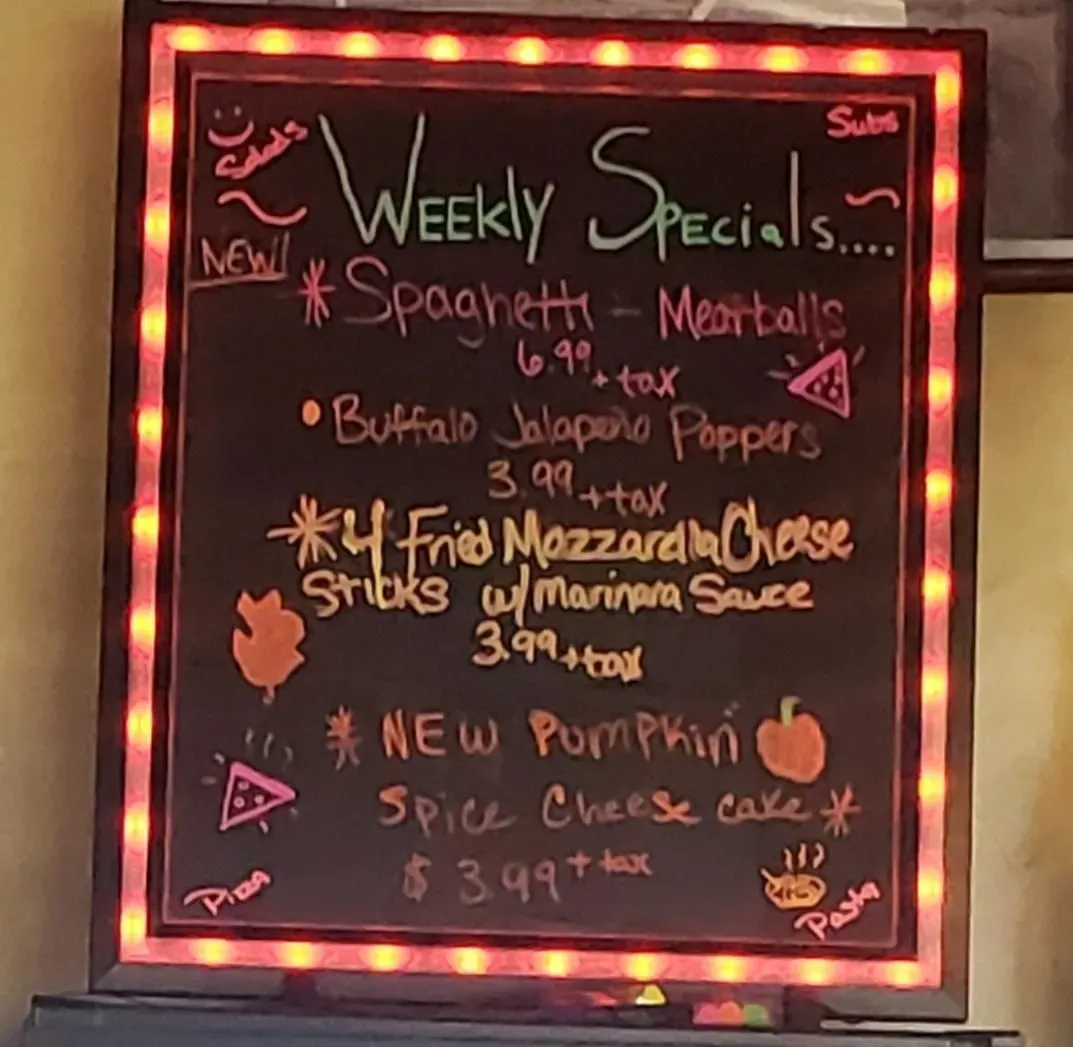 Salads
Subs
WEEKly SpEcials....
NEW!
* Spaghetti - Meatballs
6.99 + tax
• Buffalo Jalapeño Poppers
3.99 + tax
* 4 Fried Mozzarella Cheese
Sticks w/ Marinara Sauce
3.99 + tax
* NEW PumPkin
Spice Cheese cake *
$ 3.99 + tax
Pizza
Pasta